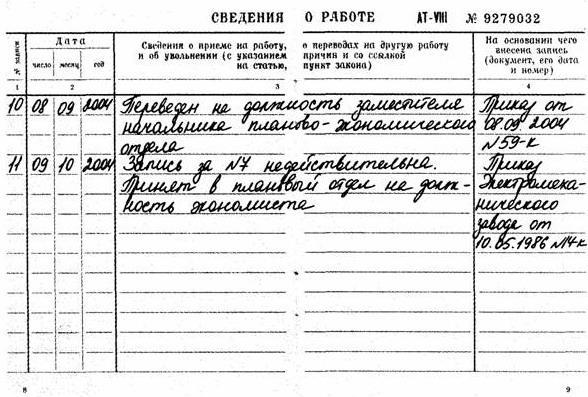 СВЕДЕНИЯ О РАБОТЕ АТ-VIII № 9279032
№ записи
Дата
Сведения о приеме на работу, о переводах на другую работу
и об увольнении (с указанием причин и со ссылкой
на статью, пункт закона)
На основании чего
внесена запись
(документ, его дата
и номер)
число месяц год
1 2 3 4
10 08 09 2004 Переведен на должность заместителя Приказ от
начальника планово-экономического 08.09.2004
отдела N59-к
11 09 10 2004 Запись за N7 недействительна. Приказ
Принят в плановый отдел на долж- Электромеха-
ность экономиста нического
завода от
10.05.1986 N14-к
8 9